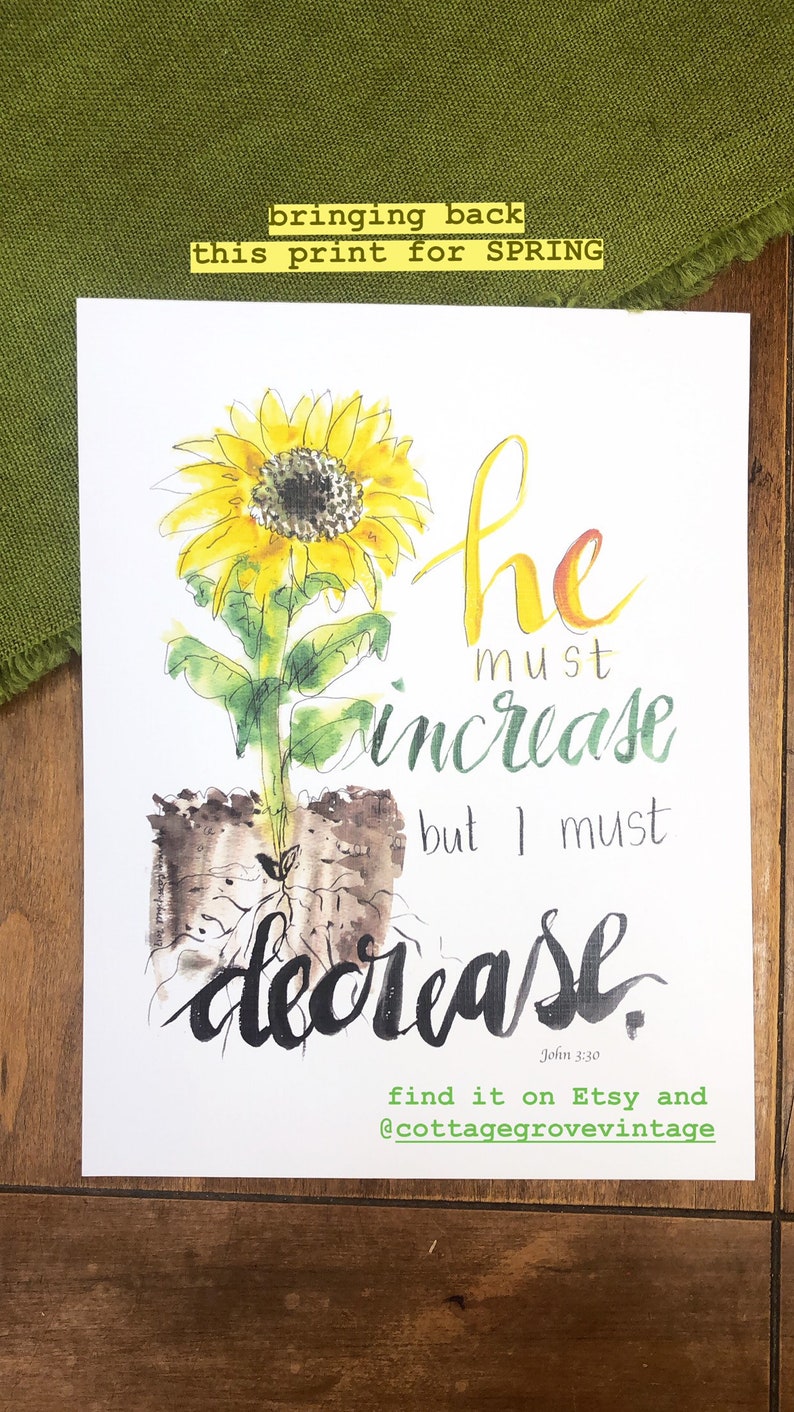 bringing back
this print for SPRING
he
must
increase
but I must
decrease.
John 3:30
find it on Etsy and
@cottagegrovevintage